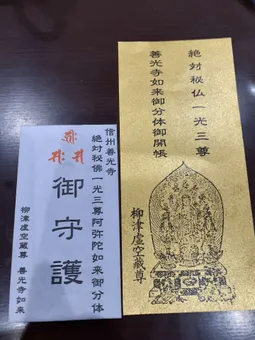 信州善光寺
絶対秘佛一光三尊阿弥陀如来御分体
御守護
柳津虚空蔵尊 善光寺如来
絶対秘仏一光三尊
善光寺如来御分体御開帳
柳津虚空蔵尊